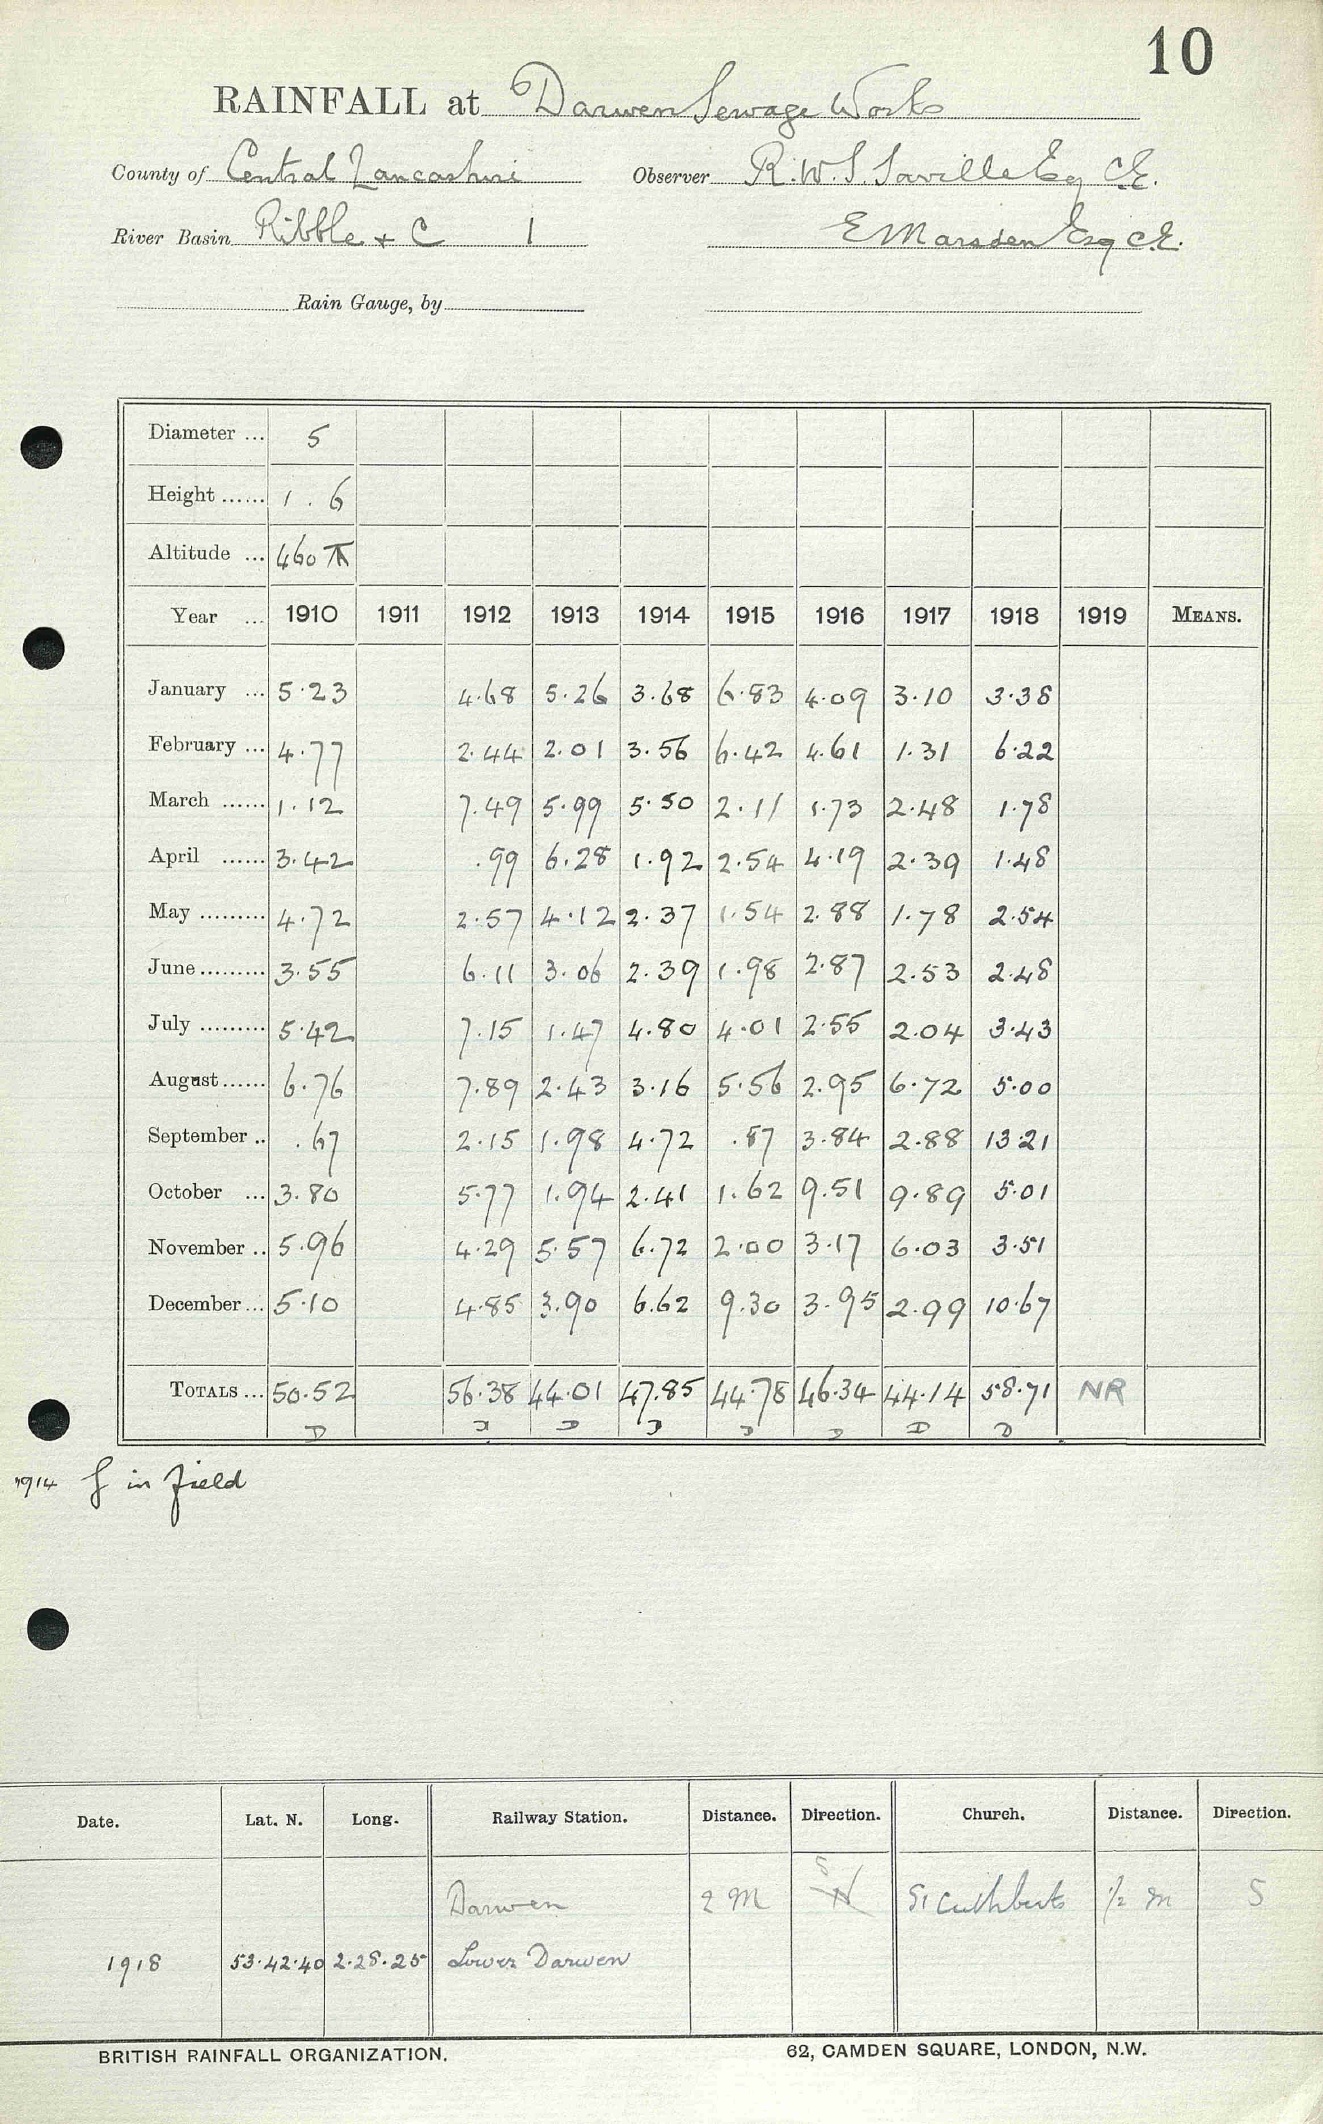 10
RAINFALL at Darwen Sewage Works
County of Central Lancashire Observer R.W.S. Saville Esq C.E.
River Basin Ribble + C 1 E Marsden Esq C.E.
Rain Gauge, by
Diameter ... 5
Height ...... 1 . 6
Altitude ... 460
Year ... 1910 1911 1912 1913 1914 1915 1916 1917 1918 1919 MEANS.
January ... 5.23 4.68 5.26 3.68 6.83 4.09 3.10 3.38
February ... 4.77 2.44 2.01 3.56 6.42 4.61 1.31 6.22
March ...... 1.12 7.49 5.99 5.50 2.11 1.73 2.48 1.78
April ...... 3.42 .99 6.28 1.92 2.54 4.19 2.39 1.48
May ......... 4.72 2.57 4.12 2.37 1.54 2.88 1.78 2.54
June ......... 3.55 6.11 3.06 2.39 1.98 2.87 2.53 2.48
July ......... 5.42 7.15 1.47 4.80 4.01 2.55 2.04 3.43
August ...... 6.76 7.89 2.43 3.16 5.56 2.95 6.72 5.00
September .. .67 2.15 1.98 4.72 .87 3.84 2.88 13.21
October ... 3.80 5.77 1.94 2.41 1.62 9.51 9.89 5.01
November .. 5.96 4.29 5.57 6.72 2.00 3.17 6.03 3.51
December ... 5.10 4.85 3.90 6.62 9.30 3.95 2.99 10.67
TOTALS ... 50.52 56.38 44.01 47.85 44.78 46.34 44.14 58.71 NR
D D D D D D D D
1914 f in field
Date. Lat. N. Long. Railway Station. Distance. Direction. Church. Distance. Direction.
Darwen 2 M S N St Cuthberts 1/2 m S
1918 53.42.40 2.28.25 Lower Darwen
BRITISH RAINFALL ORGANIZATION. 62, CAMDEN SQUARE, LONDON, N.W.